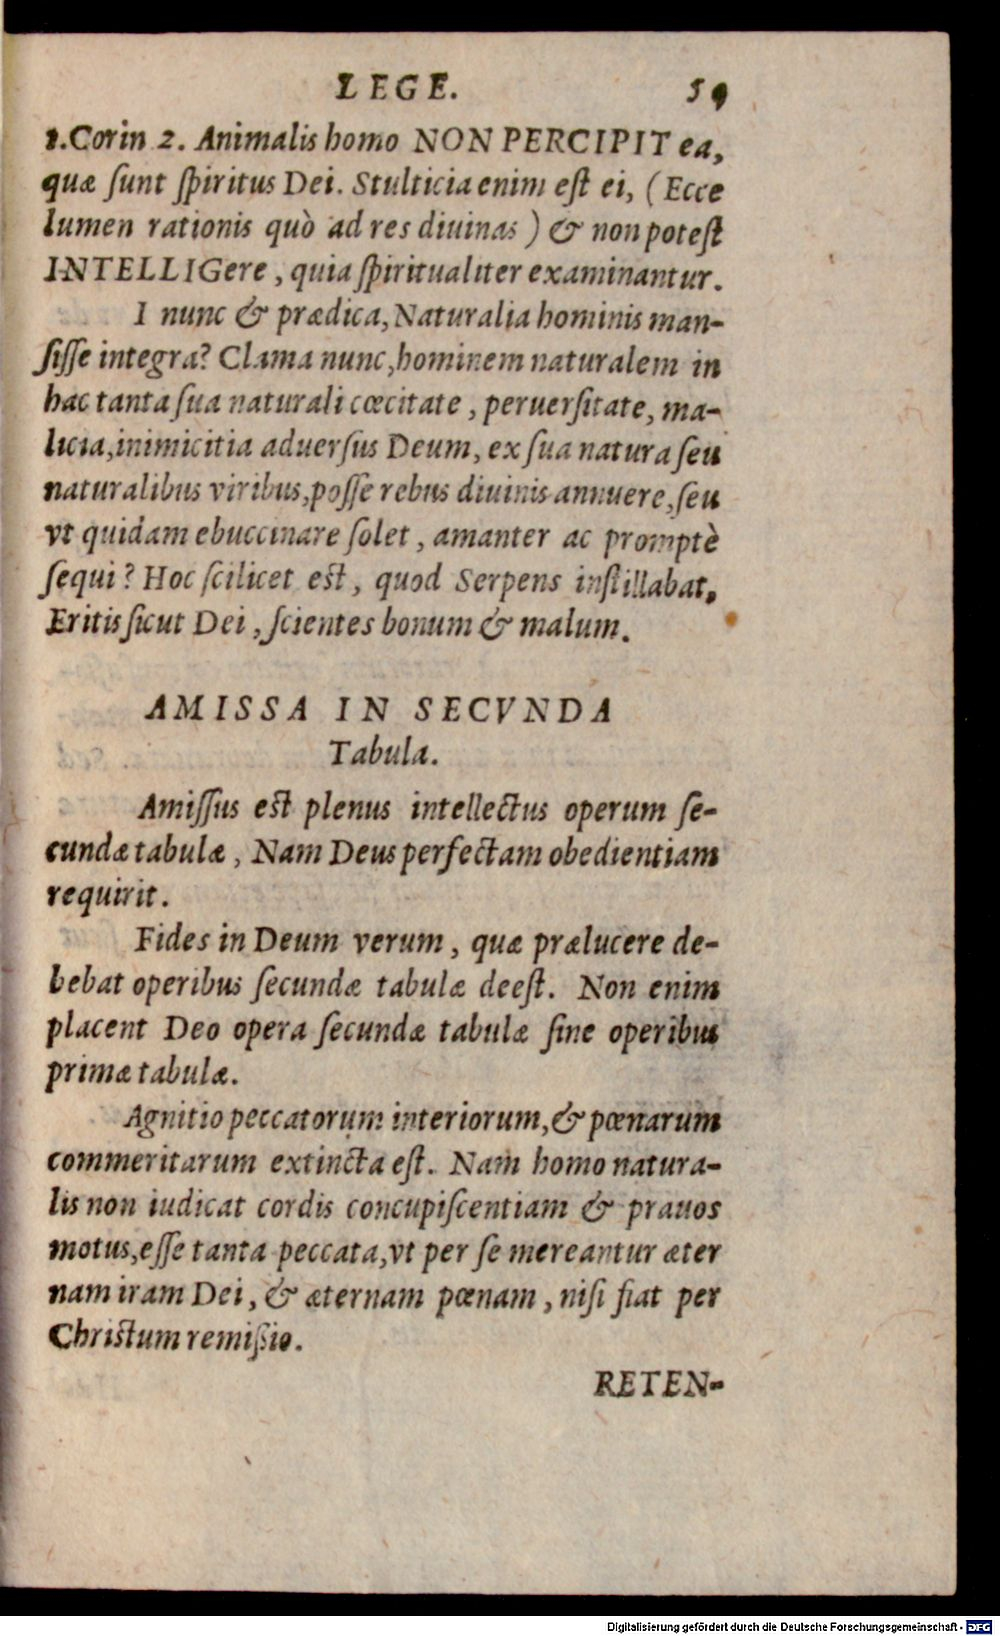 LEGE. 59
1.Corin 2. Animalis homo NON PERCIPIT ea,
quæ ſunt ſpiritus Dei. Stulticia enim eſt ei, (Ecce
lumen rationis quò ad res diuinas) & non poteſt
INTELLIGere, quia ſpiritualiter examinantur.
I nunc & prædica, Naturalia hominis man-
ſiſſe integra? Clama nunc, hominem naturalem in
hac tanta ſua naturali cœcitate, peruerſitate, ma-
licia, inimicitia aduerſus Deum, ex ſua natura ſeu
naturalibus viribus, poſſe rebus diuinis annuere, ſeu
vt quidam ebuccinare ſolet, amanter ac promptè
ſequi? Hoc ſcilicet eſt, quod Serpens inſtillabat,
Eritis ſicut Dei, ſcientes bonum & malum.
AMISSA IN SECVNDA
Tabula.
Amiſſus eſt plenus intellectus operum ſe-
cundæ tabulæ, Nam Deus perfectam obedientiam
requirit.
Fides in Deum verum, quæ prælucere de-
bebat operibus ſecundæ tabulæ deeſt. Non enim
placent Deo opera ſecundæ tabulæ ſine operibus
primæ tabulæ.
Agnitio peccatorum interiorum, & pœnarum
commeritarum extincta eſt. Nam homo natura-
lis non iudicat cordis concupiſcentiam & prauos
motus, eſſe tanta peccata, vt per ſe mereantur æter
nam iram Dei, & æternam pœnam, niſi fiat per
Chriſtum remiſsio.
RETEN-
Digitalisierung gefördert durch die Deutsche Forschungsgemeinschaft - DFG